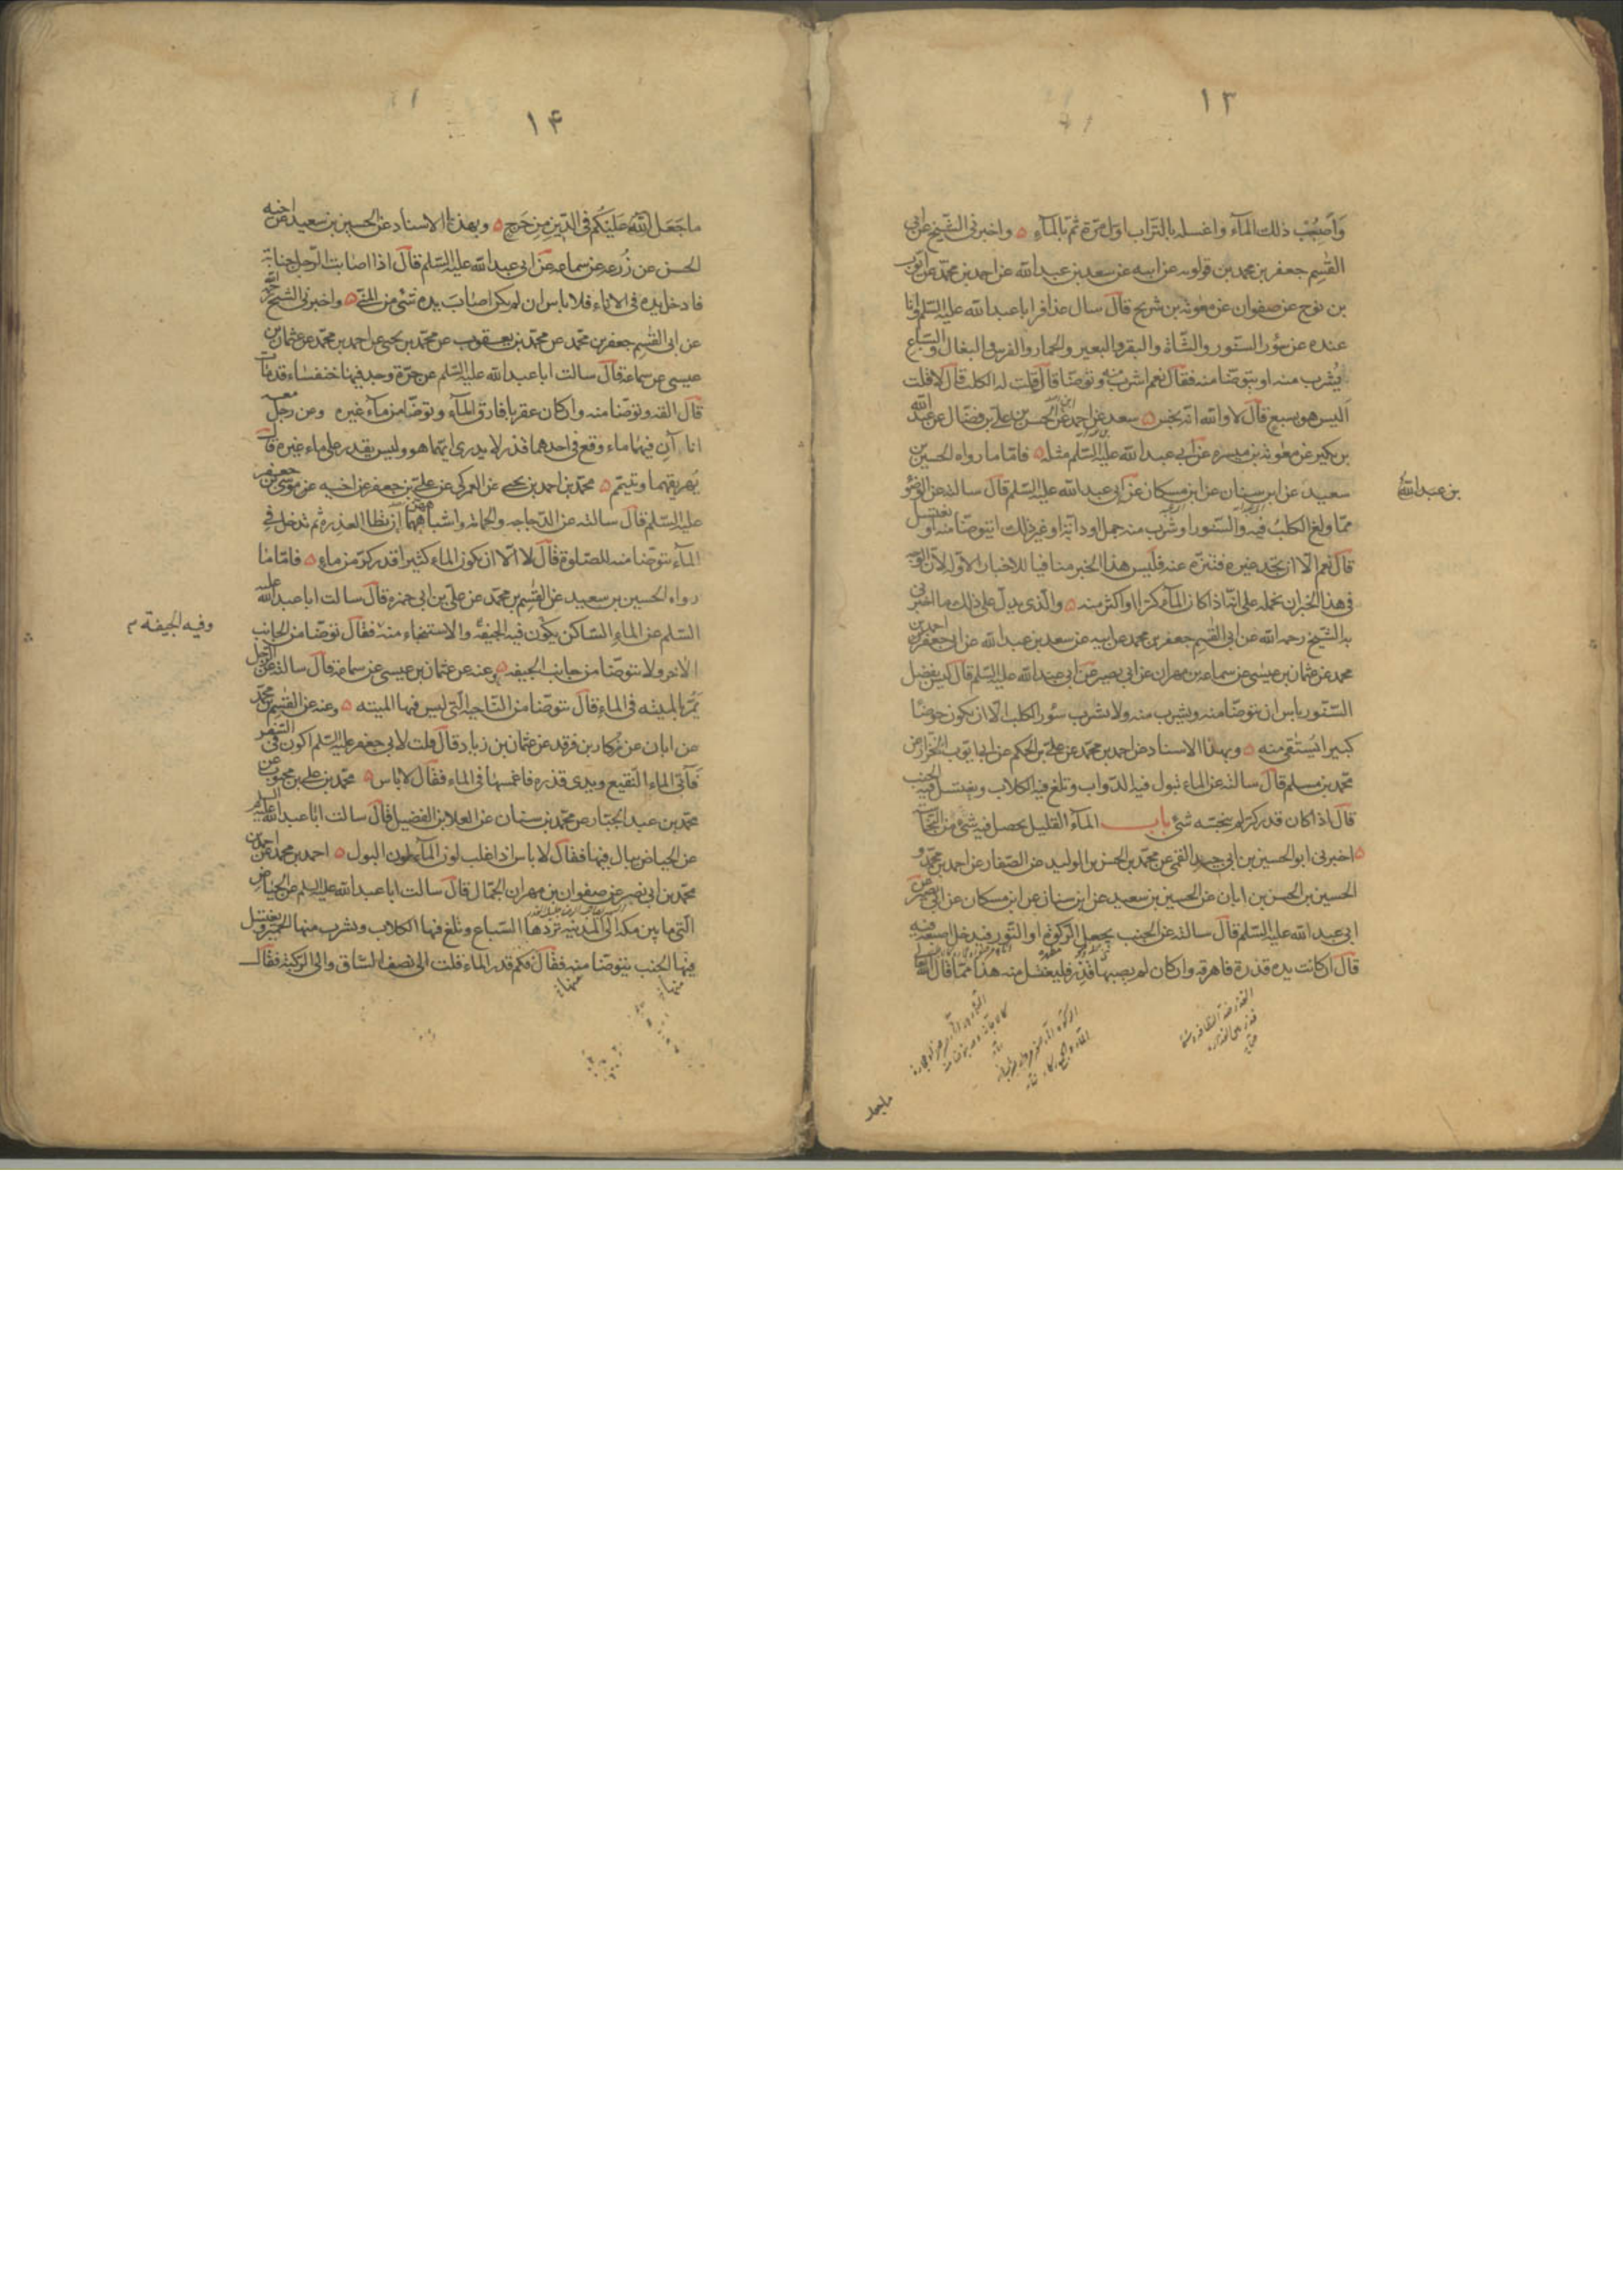 ١٣
وَاصبُبْ ذلك المآء واغسله بالتراب اوّل مرّة ثمّ بالمآء ۵ واخبرنى الشّيخ عن ابى
القٰسِم جعفر بن محمد بن قولويه عن ابيه عن سعد بن عبد الله عن احمد بن محمّد عن ايّوب
بن نوح عن صفوان عن معٰوية بن شريح قال سال عذافر ابا عبد الله عليه السّلم وانا
عنده عن سؤر السنّور والشّاة والبقرة والبعير والحمار والفرس والبغال والسّباع
يُشرب منه او يتوضّا منه فقال نعم اشرب منه وتوضّا قال قلت له الكلب قال لا قلت
اَليس هو بسبع قال لا والله انّه نجس ۵ سعد عن احمد عن الحسن بن علىّ بن فضّال عن عبد الله
بن بكير عن معٰوية بن ميسره عن ابى عبد الله عليه السّلم مثله ۵ فامّا ما رواه الحسين بن
سعيد عن ابن سنان عن ابن مسكان عن ابى عبد الله عليه السّلم قال سالته عن الوضوء
بن عبد الله
ممّا ولغ الكلبُ فيه والسّنّور او شَرب منه جمل او دابّة او غير ذلك ايتوضّا منه او يغتسل
قال نعم الّا ان تجد غيره فتنزّه عنه فليس هذا الخبر منافيا للاخبار الاوّله لانّ الوجه
فى هذا الخبر ان نحمله على انّه اذا كان المآء كرّا او اكثر منه ۵ والّذى يدلّ على ذلك ما اخبرنى
به الشّيخ رحمه الله عن ابى القٰسِم جعفر بن محمد عن ابيه عن سعد بن عبد الله عن ابى جعفر احمد بن
محمد عن عثمان بن عيسى عن سماعه بن مهران عن ابى بصير عن ابى عبد الله عليه السّلم قال ليس بفضل
السّنّور باس ان يتوضّا منه ويشرب منه ولا يشرب سؤر الكلب الّا ان يكون حوضًا
كبيرا يُستَقى منه ۵ وبهذا الاسناد عن احمد بن محمّد عن علىّ بن الحكم عن ابى ايّوب الخزّاز عن
محمّد بن مسلم قال سالته عن الماء تبول فيه الدّواب وتلغ فيه الكلاب ويغتسل فيه الجنب
قال اذا كان قدر كرّ لم ينجّسه شئ باب المآء القليل يحصل فيه شئ من النّجاسة
۵ اخبرنى ابو الحسين بن ابى جيد القمى عن محمّد بن الحسن بن الوليد عن الصّفار عن احمد بن محمّد و
الحسين بن الحسن بن ابان عن الحسين بن سعيد عن ابن سنان عن ابن مسكان عن ابى بصير عن
ابى عبد الله عليه السّلم قال سالته عن الجنب يجعل الركوة او التّور فيدخل اصبعه فيه
قال ان كانت يده قذرة فاهرقه وان كان لم يصبها قذر فليغتسل منه هذا ممّا قال الله تعالى
١۴
ما جَعَلَ اللهُ عَلَيْكُم فى الدّين مِن حَرج ۵ وبهذا الاسناد عن الحسين بن سعيد عن اخيه
الحسن عن زُرعه عن سماعه عن ابى عبد الله عليه السّلم قال اذا اصابت الرّجل جنابة
فادخل يده فى الاناء فلا باس ان لم يكن اصاب يده شئ من المنّى ۵ واخبرنى الشيخ رحمه الله
عن ابى القٰسِم جعفر بن محمّد عن محمّد بن يعقوب عن محمّد بن يحيى عن احمد بن محمّد عن عثمان بن
عيسى عن سماعة قال سالت ابا عبد الله عليه السّلم عن جرّة وجد فيها خنفساء قد مات
قال القه وتوضّا منه وان كان عقربا فارق المآء وتوضّا من مآء غيره وعن رجل معه
اناءآن فيهما ماء وقع فى احدهما قذر لا يدرى ايّهما هو وليس يقدر على ماء غيره قال
يُهريقهما ويتيمّم ۵ محمّد بن احمد بن يحيى عن العمركى عن علىّ بن جعفر عن اخيه عن موسى بن جعفر
عليه السّلم قال سالته عن الدّجاجه والحمامة واشباههما تطا العذره ثم تدخل فى
المآء يتوضّا منه للصّلوة قال لا الّا ان يكون الماء كثيرا قدر كرّ من ماء ۵ فامّا ما
رواه الحسين بن سعيد عن القٰسِم بن محمّد عن علىّ بن ابى حمزه قال سالت ابا عبد الله عليه
السّلم عن الماء السّاكن يكون فيه الجيفة والاستنجاء منه فقال توضّا من الجانب
وفيه الجيفة م
الاخر ولا تتوضّا من جانب الجيفه ۵ وعنه عن عثمان بن عيسى عن سماعة قال سالته عن الرّجل
يَمُرّ بالميته فى الماء قال يتوضّا من النّاحية الّتى ليس فيها الميته ۵ وعنه عن القٰسِم بن محمّد
عن ابان عن زكار بن فرقد عن عثمان بن زياد قال قلت لابى جعفر عليه السّلم اكون فى السّفر
فَآتى الماء النّقيع ويدى قذره فاغمسها فى الماء فقال لا باس ۵ محمّد بن على بن محبوب عن
محمّد بن عبد الجبّار عن محمّد بن سنان عن العلا بن الفضيل قال سالت ابا عبد الله عليه السلم
عن الحياض يبال فيها فقال لا باس اذا غلب لون المآء لون البول ۵ احمد بن محمد عن احمد بن
محمّد بن ابى نصر عن صفوان بن مهران الجمّال قال سالت ابا عبد الله عليه السلم عن الحياض
الّتى ما بين مكه الى المدينه تردها السّباع وتلغ فيها الكلاب ويشرب منها الحمير ويغتسل
فيها الجنب يتوضّا منه فقال فكم قدر الماء قلت الى نصف السّاق والى الركبة فقال